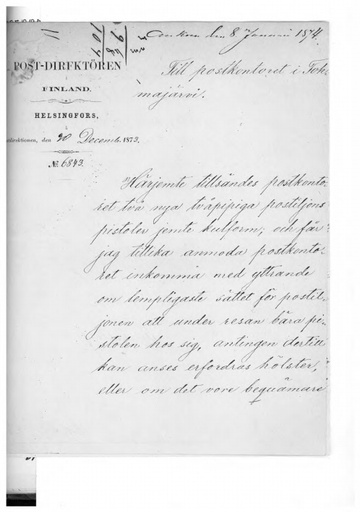 den 8 Januari 1874.
POST-DIREKTÖREN
i
FINLAND.
HELSINGFORS,
den 30 Decemb. 1873.
No 6842.
Till postkontoret i Toh-
majärvi.
Härjemte tillsändes postkonto-
ret två nya tvåpipiga postiljons
pistoler jemte kulform, och får
jag tillika anmoda postkonto-
ret inkomma med yttrande
om lämpligaste sättet för postil-
jonen att under resan bära pi-
stolen hos sig, antingen dertill
kan anses erfordras hölster,
eller om det vore beqvämare